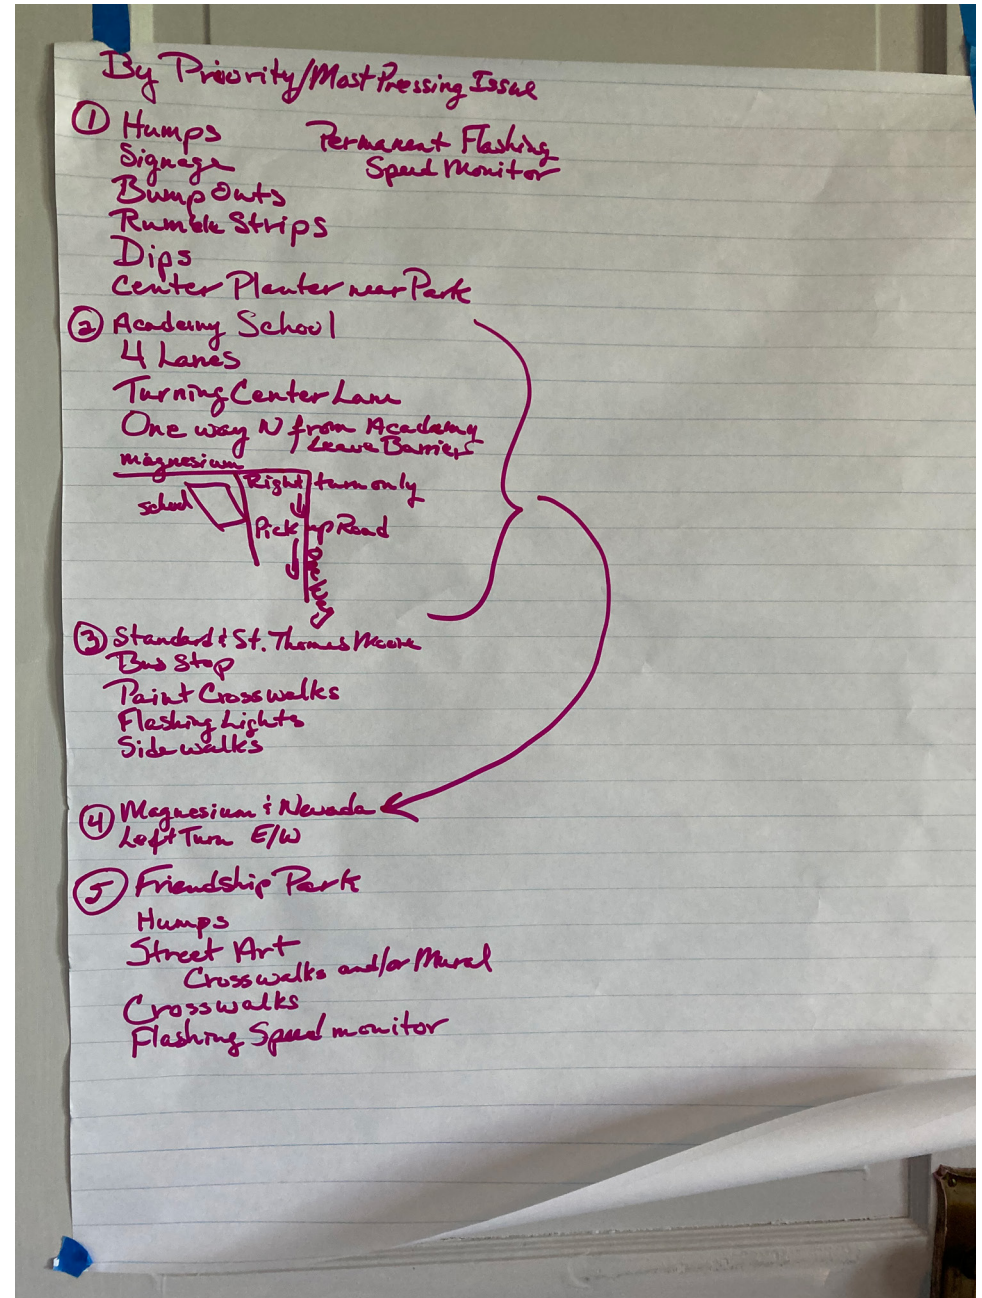 By Priority/Most Pressing Issue
① Humps
Permanent Flashing
Speed Monitor
Signage
Bump Outs
Rumble Strips
Dips
Center Planter near Park
② Academy School
4 Lanes
Turning Center Lane
One way N from Academy
Leave Barriers
magnesium
Right turn only
school
Pick up Road
③ Standard & St. Thomas Moore
Bus Stop
Paint Crosswalks
Flashing Lights
Sidewalks
④ Magnesium & Nevada
Left Turn E/W
⑤ Friendship Park
Humps
Street Art
Crosswalks and/or Mural
Crosswalks
Flashing Speed monitor